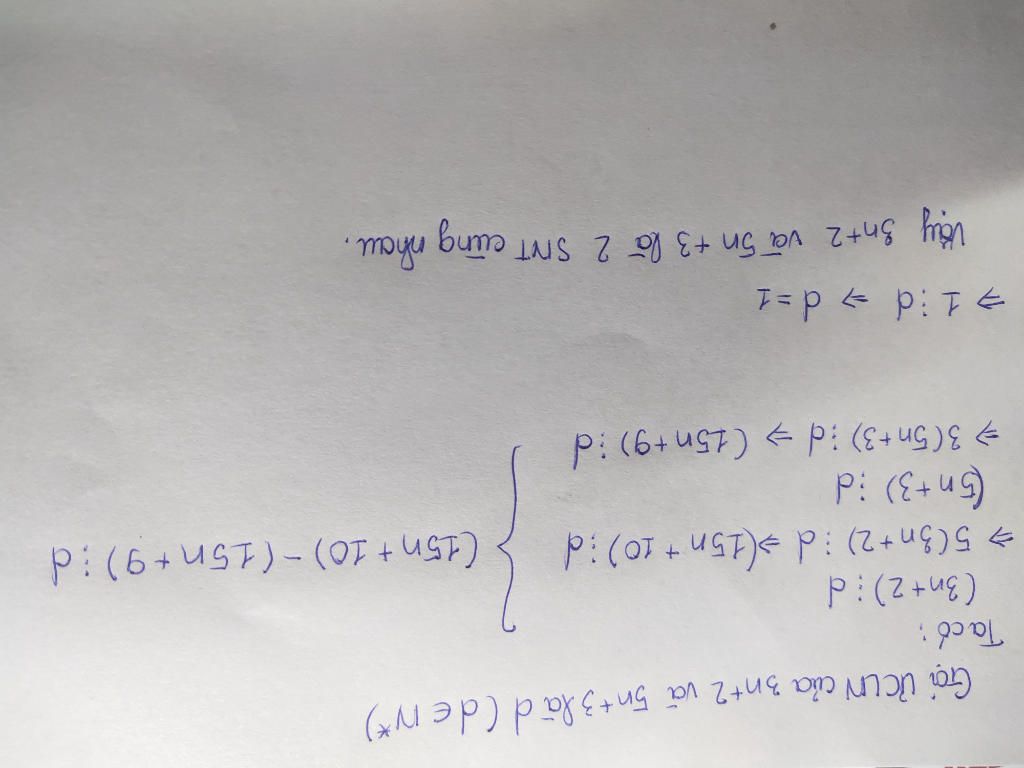 Gọi ƯCLN của 3n+2 và 5n+3 là d (d ∈ N*)
Ta có:
(3n+2) ⋮ d
⇒ 5(3n+2) ⋮ d ⇒ (15n+10) ⋮ d } (15n+10) - (15n+9) ⋮ d
(5n+3) ⋮ d
⇒ 3(5n+3) ⋮ d ⇒ (15n+9) ⋮ d
⇒ 1 ⋮ d ⇒ d = 1
Vậy 3n+2 và 5n+3 là 2 SNT cùng nhau.